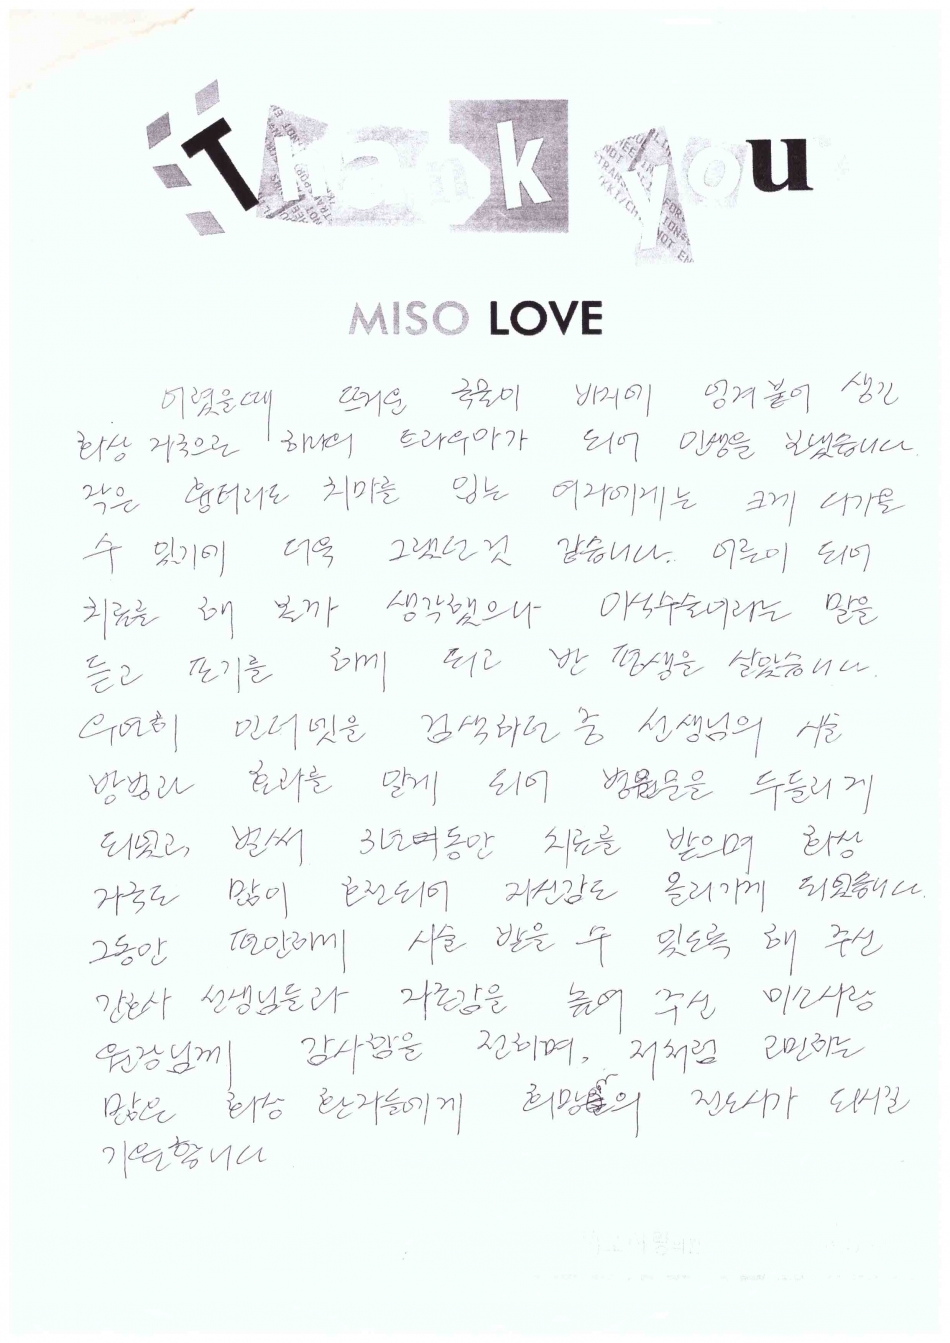 Thank you
MISO LOVE
어렸을때 뜨거운 국물이 바지에 엉겨붙어 생긴
화상 자국으로 하나의 트라우마가 되어 인생을 보냈습니다.
작은 흉터라도 치마를 입는 여자에게는 크게 다가올
수 있기에 더욱 그랬던것 같습니다. 어른이 되어
치료를 해 볼까 생각했으나 이식수술이라는 말을
듣고 포기를 하게 되고 반 평생을 살았습니다.
우연히 인터넷을 검색하던 중 선생님의 시술
방법과 효과를 알게 되어 병원문을 두들리게
되었고, 벌써 3년여동안 치료를 받으며 화상
자국도 많이 호전되어 자신감도 올리가게 되었습니다.
그동안 편안하게 시술 받을 수 있도록 해 주신
간호사 선생님들과 자존감을 높여 주신 미소사랑
원장님께 감사함을 전하며, 저처럼 고민하는
많은 화상 환자들에게 희망의 전도사가 되시길
기원합니다